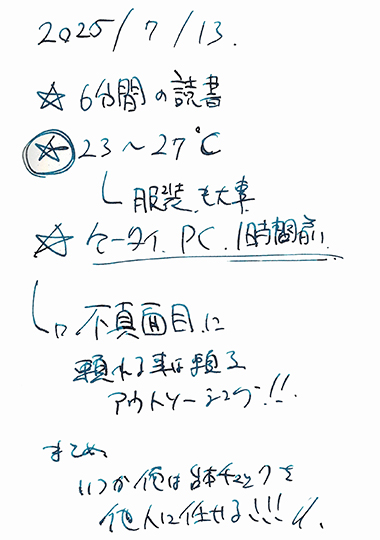 2025/7/13.
☆ 6分間の読書
☆ 23～27℃
服装も大事
☆ ケータイ、PC、1時間前
不真面目に
頼れる事は頼る
アウトソーシング!!
まとめ
いつか俺は チェックを
他人に任せる!!!